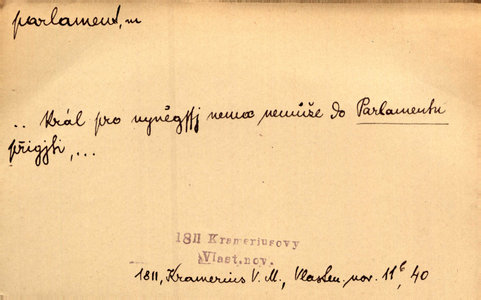 parlament, m
.. Král pro nyněgssj nemoc nemůže do Parlamentu
přigjti,...
1811 Krameriusovy
Vlast.nov.
1811, Kramerius V. M., Vlasten. nov. 11⁶, 40